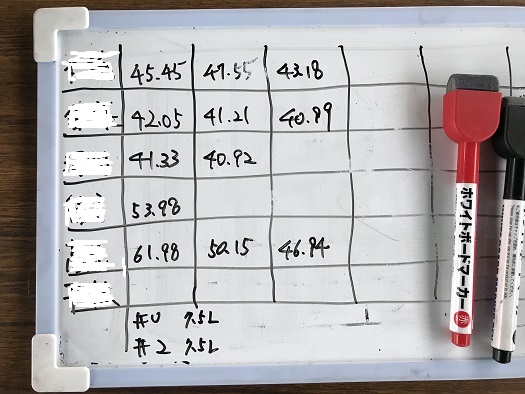 45.45 47.55 43.18
42.05 41.21 40.89
41.33 40.92
53.98
61.98 50.15 46.94
#0 7.5L
#2 7.5L
ホワイトボードマーカー 赤